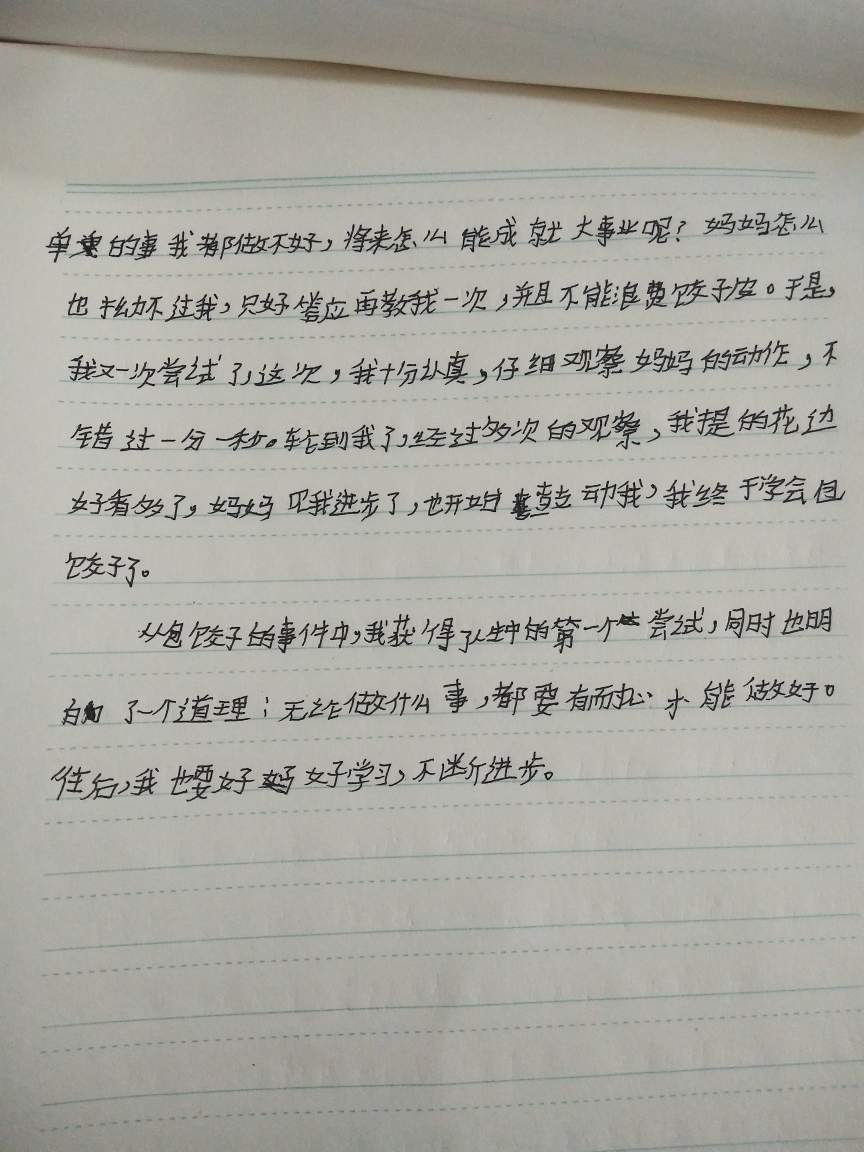 单的事我都做不好，将来怎么能成就大事业呢？妈妈怎么
也拗不过我，只好答应再教我一次，并且不能浪费饺子皮。于是，
我又一次尝试了，这次，我十分认真，仔细观察妈妈的动作，不
错过一分一秒。轮到我了，经过多次的观察，我提的花边
好看多了，妈妈见我进步了，也开始鼓动我，我终于学会包
饺子了。
从包饺子的事件中，我获得了人生中的第一个尝试，同时也明
白了一个道理：无论做什么事，都要有耐心才能做好。
往后，我也要好好学习，不断进步。